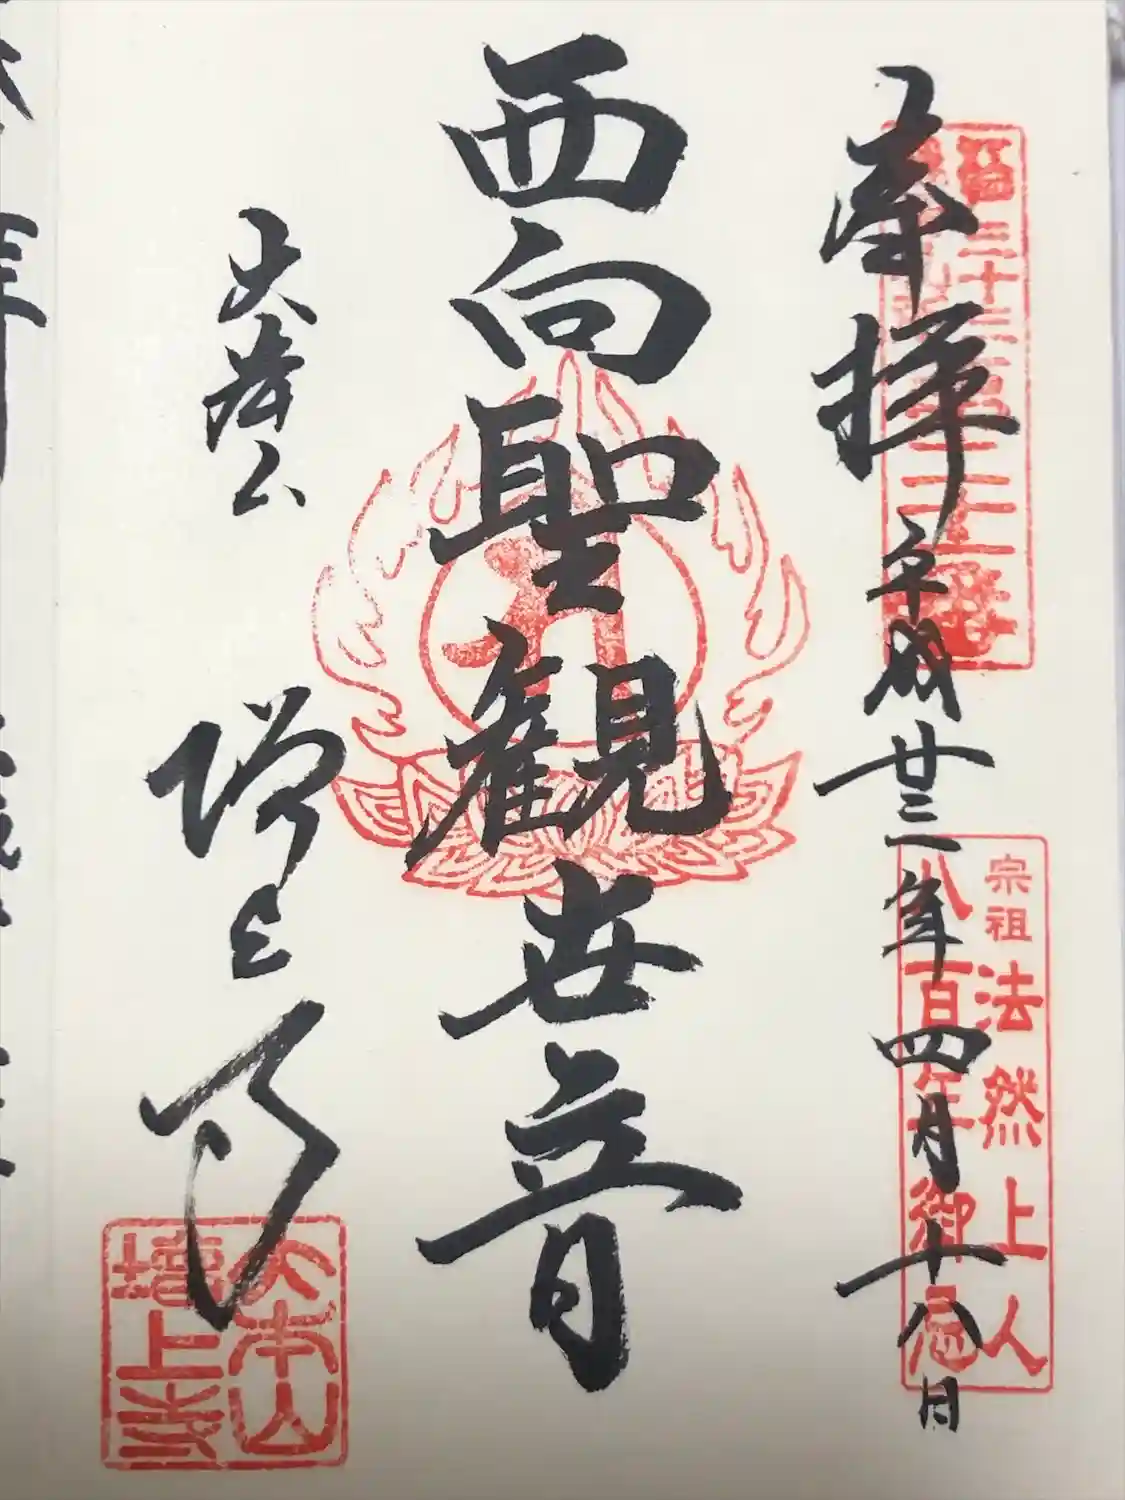 奉拝
平成廿三年四月十八日
宗祖法然上人
八百年御忌
西向聖観世音
大本山
増上寺
大本山
増上寺